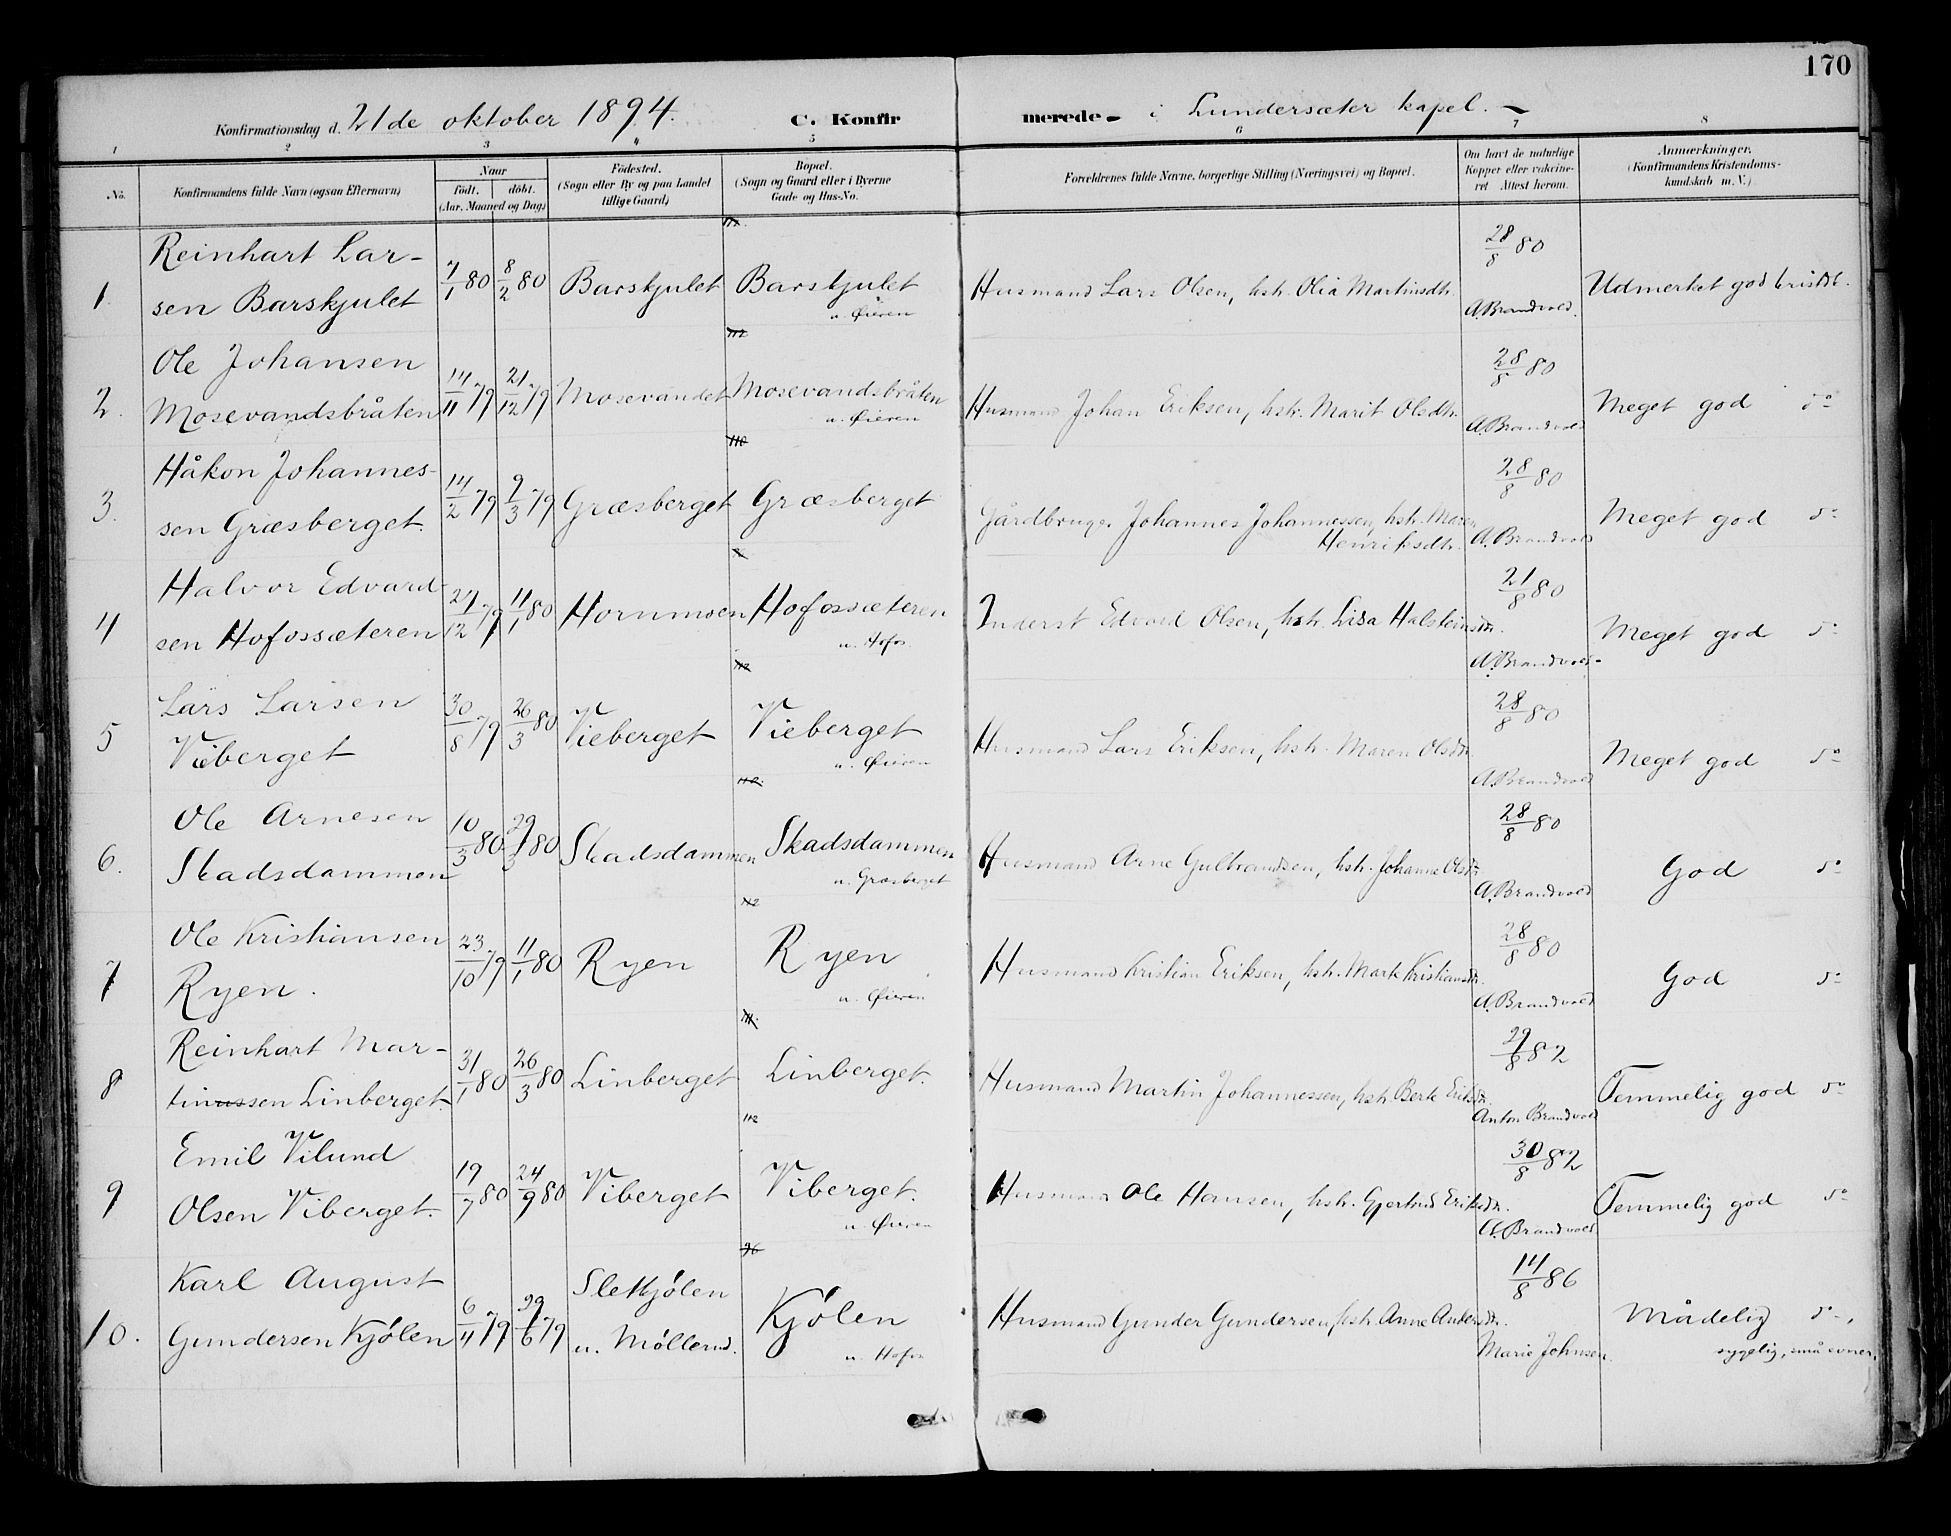 170
Konfirmationsdag d. 21de oktober 1894. C. Konfirmerede i Lundersæter kapel.
1 2 3 4 5 6 7 8
No. Konfirmandens fulde Navn (ogsaa Efternavn) Naar født. døbt. (Aar, Maaned og Dag) Fødested. (Sogn eller By og paa Landet tillige Gaard) Bopæl. (Sogn og Gaard eller i Byerne Gade og Hus-No. Forældrenes fulde Navne, borgerlige Stilling (Næringsvei) og Bopæl. Om havt de naturlige Kopper eller vakcineret Attest herom. Anmærkninger. (Konfirmandens Kristendomskundskab m. V.)
Reinhart Lar- 28/8 80
1. sen Barskjulet 7/1 80 8/2 80 Barskjulet Barskjulet Husmand Lars Olsen, hstr. Olia Martinsdtr. Udmerket god kristdk.
u. Øieren A. Brandvold.
112
Ole Johansen 28/8 80
2. Mosevandsbråten 14/11 79 21/12 79 Mosevandet Mosevandsbråten Husmand Johan Eriksen, hstr. Marit Olsdtr. Meget god do
u. Øieren A. Brandvold
110
Håkon Johannes- 28/8 80
3. sen Græsberget. 14/2 79 9/3 79 Græsberget Græsberget Gårdbruger Johannes Johannessen, hstr. Maren Meget god do
Henriksdtr. A. Brandvold
Halvor Edvard- 21/8 80
4 sen Hofossæteren 27/12 79 11/1 80 Hornmoen Hofossæteren Inderst Edvard Olsen, hstr. Lisa Halsteinsdtr. Meget god do
u. Hofos. A. Brandvold.
112
Lars Larsen 28/8 80
5 Vieberget 30/8 79 26/3 80 Vieberget Vieberget Husmand Lars Eriksen, hstr. Maren Olsdtr. Meget god do
u. Øieren A. Brandvold
110.
Ole Arnesen 28/8 80
6. Skadsdammen 10/3 80 29/3 80 Skadsdammen Skadsdammen Husmand Arne Gulbrandsen, hstr. Johanne Olsdtr. God do
u. Græsberget A. Brandvold
112
Ole Kristiansen 28/8 80
7 Ryen. 23/10 79 11/1 80 Ryen Ryen Husmand Kristian Eriksen, hstr. Marte Kristiansdtr. God do
u. Øieren A. Brandvold
111.
Reinhart Mar- 29/8 82
8 tinussen Linberget. 31/1 80 26/3 80 Linberget Linberget. Husmand Martin Johannessen, hstr. Berte Eriksdtr. Temmelig god do
Anton Brandvold
112
Emil Vilund 30/8 82
9 Olsen Viberget. 19/7 80 24/9 80 Viberget Viberget. Husmand Ole Hansen, hstr. Gjertrud Eriksdtr. Temmelig god do
u. Øieren A. Brandvold.
96
Karl August Sletkjølen 14/8 86
10. Gundersen Kjølen 6/4 79 29/6 79 u. Møllerud. Kjølen Husmand Gunder Gundersen, hstr. Anne Andersdtr. Mådelig do,
u. Hofos Marie Johnsen. sygelig, små evner.